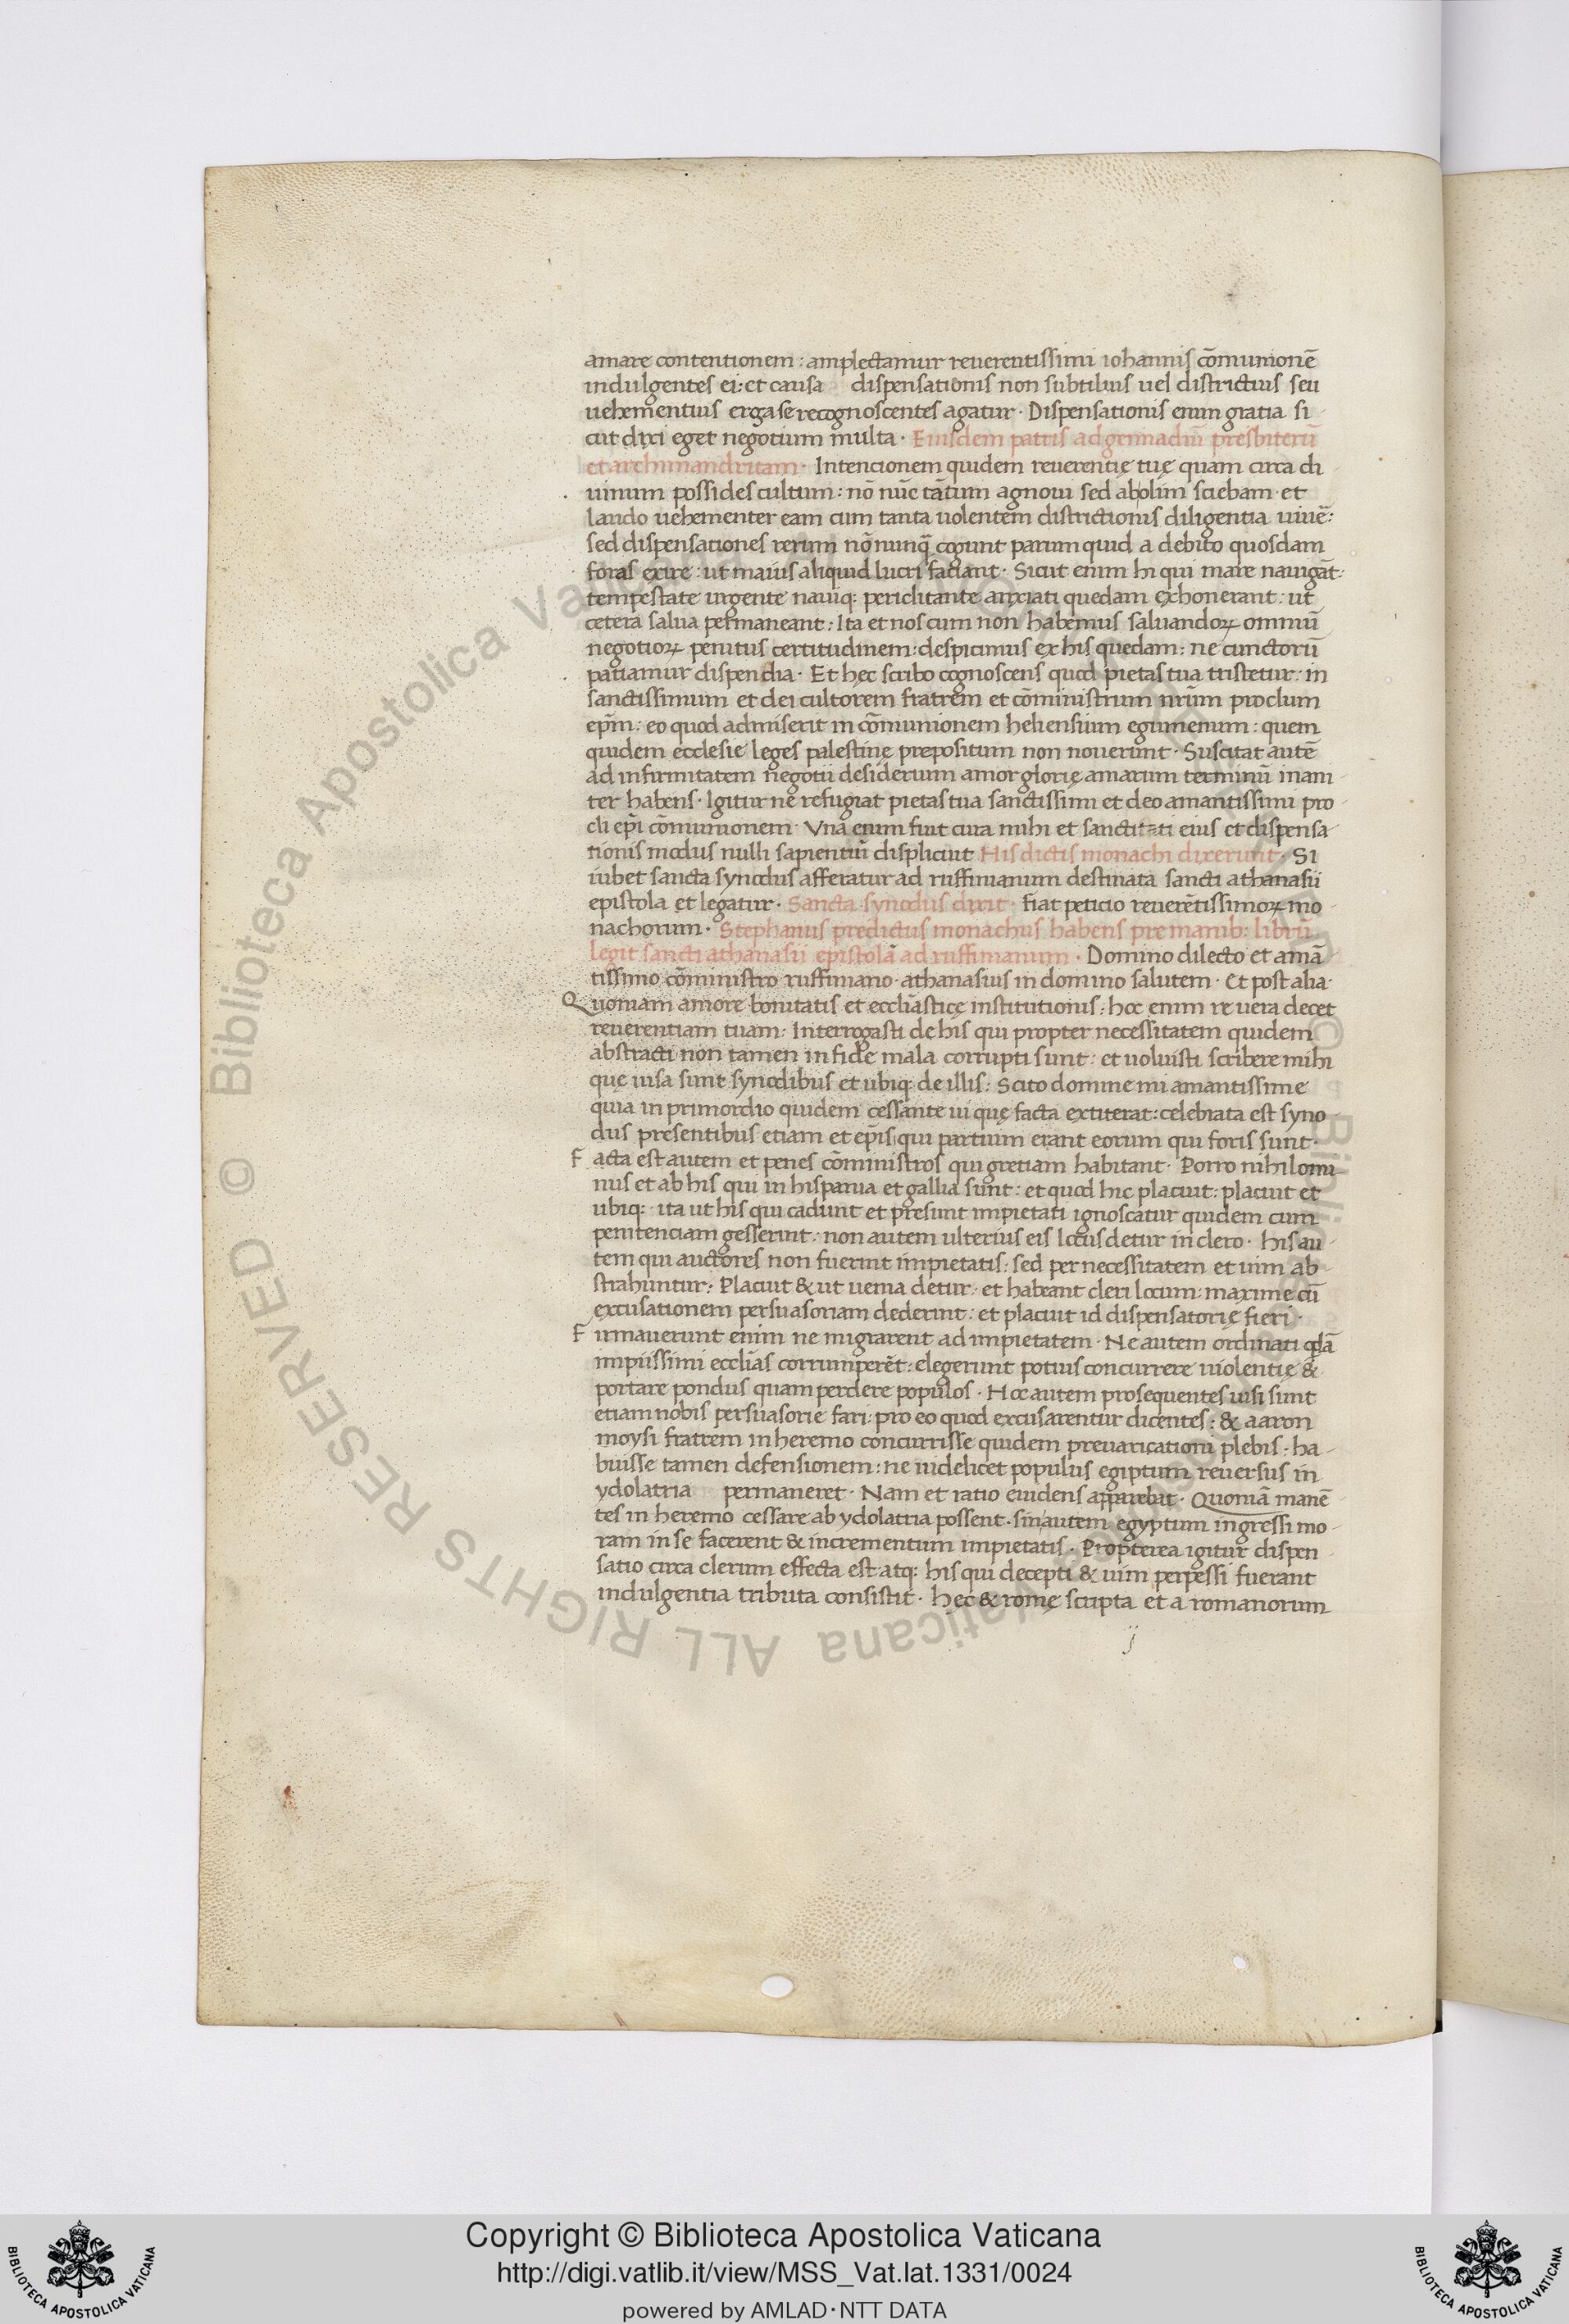 amare contentionem: amplectamur reuerentissimi iohannis cōmunionē
indulgentes ei: et causa dispensationis non subtilius uel districtius seu
uehementius erga se recognoscentes agatur· Dispensationis enim gratia si
cut dixi eget negotium multa· Eiusdem patris ad gennadiū presbiterū
et archimandritam· Intencionem quidem reuerentię tuę quam circa di
uinum possides cultum: nō nūc tātum agnoui sed ab olim sciebam· et
laudo uehementer eam cum tanta uolentem districtionis diligentia uiuē:
sed dispensationes rerum nō nunq̄ cogunt parum quid a debito quosdam
foras exire: ut maius aliquid lucri faciant· Sicut enim hi qui mare nauigāt:
tempestate urgente nauiq: periclitante anxiati quedam exhonerant: ut
cetera salua permaneant: Ita et nos cum non habemus saluandoꝝ omniū
negotioꝝ penitus certitudinem: despicimus ex his quedam: ne cunctorū
patiamur dispendia· Et hec scribo cognoscens quod pietas tua tristetur: in
sanctissimum et dei cultorem fratrem et cōministrum nr̄um proclum
ep̄m: eo quod admiserit in cōmunionem heliensium egumenum: quem
quidem ecclesie leges palestinę prepositum non nouerunt· Suscitat autē
ad infirmitatem negotii desiderium amor glorię amarum terminū inani
ter habens· Igitur ne refugiat pietas tua sanctissimi et deo amantissimi pro
cli ep̄i cōmunionem· Vna enim fuit cura mihi et sanctitati eius et dispensa
tionis modus nulli sapientiū displicuit His dictis monachi dixerunt· Si
iubet sancta synodus afferatur ad ruffinianum destinata sancti athanasii
epistola et legatur· Sancta synodus dixit· fiat peticio reuerētissimoꝝ mo
nachorum· Stephanus predictus monachus habens pre manib: librū
legit sancti athanasii epistolā ad ruffinianum· Domino dilecto et amā
tissimo cōministro ruffiniano· athanasius in domino salutem· Et post alia·
Quoniam amore bonitatis et eccl̄iasticę institutionis: hoc enim re uera decet
reuerentiam tuam: Interrogasti de his qui propter necessitatem quidem
abstracti non tamen in fide mala corrupti sunt: et uoluisti scribere mihi
que uisa sunt synodibus et ubiq: de illis: Scito domine mi amantissime
quia in primordio quidem cessante ui quę facta extiterat: celebrata est syno
dus presentibus etiam et ep̄is qui partium erant eorum qui foris sunt·
Facta est autem et penes cōministros qui gretiam habitant· Porro nihilomi
nus et ab his qui in hispania et gallia sunt: et quod hic placuit: placuit et
ubiq: ita ut his qui cadunt et presunt impietati ignoscatur quidem cum
penitenciam gesserint: non autem ulterius eis locus detur in clero· his au
tem qui auctores non fuerint impietatis: sed per necessitatem et uim ab
strahuntur: Placuit & ut uenia detur: et habeant cleri locum: maxime cū
excusationem persuasoriam dederint: et placuit id dispensatorię fieri·
Firmauerunt enim ne migrarent ad impietatem· Ne autem ordinati qdā
impiissimi eccl̄ias corrumperēt: elegerunt potius concurrere uiolentię &
portare pondus quam perdere populos· Hoc autem prosequentes uisi sunt
etiam nobis persuasorie fari: pro eo quod excusarentur dicentes: & aaron
moysi fratrem in heremo concurrisse quidem preuaricationi plebis: ha
buisse tamen defensionem: ne uidelicet populus egiptum reuersus in
ydolatria permaneret· Nam et ratio euidens apparebat· Quoniā manē
tes in heremo cessare ab ydolatria possent· sin autem egyptum ingressi mo
ram in se facerent & incrementum impietatis· Propterea igitur dispen
satio circa clerum effecta est atq: his qui decepti & uim perpessi fuerant
indulgentia tributa consistit· hęc & romę scripta et a romanorum
© Biblioteca Apostolica Vaticana ALL RIGHTS RESERVED
Copyright © Biblioteca Apostolica Vaticana
http://digi.vatlib.it/view/MSS_Vat.lat.1331/0024
powered by AMLAD·NTT DATA
BIBLIOTECA APOSTOLICA VATICANA
BIBLIOTECA APOSTOLICA VATICANA